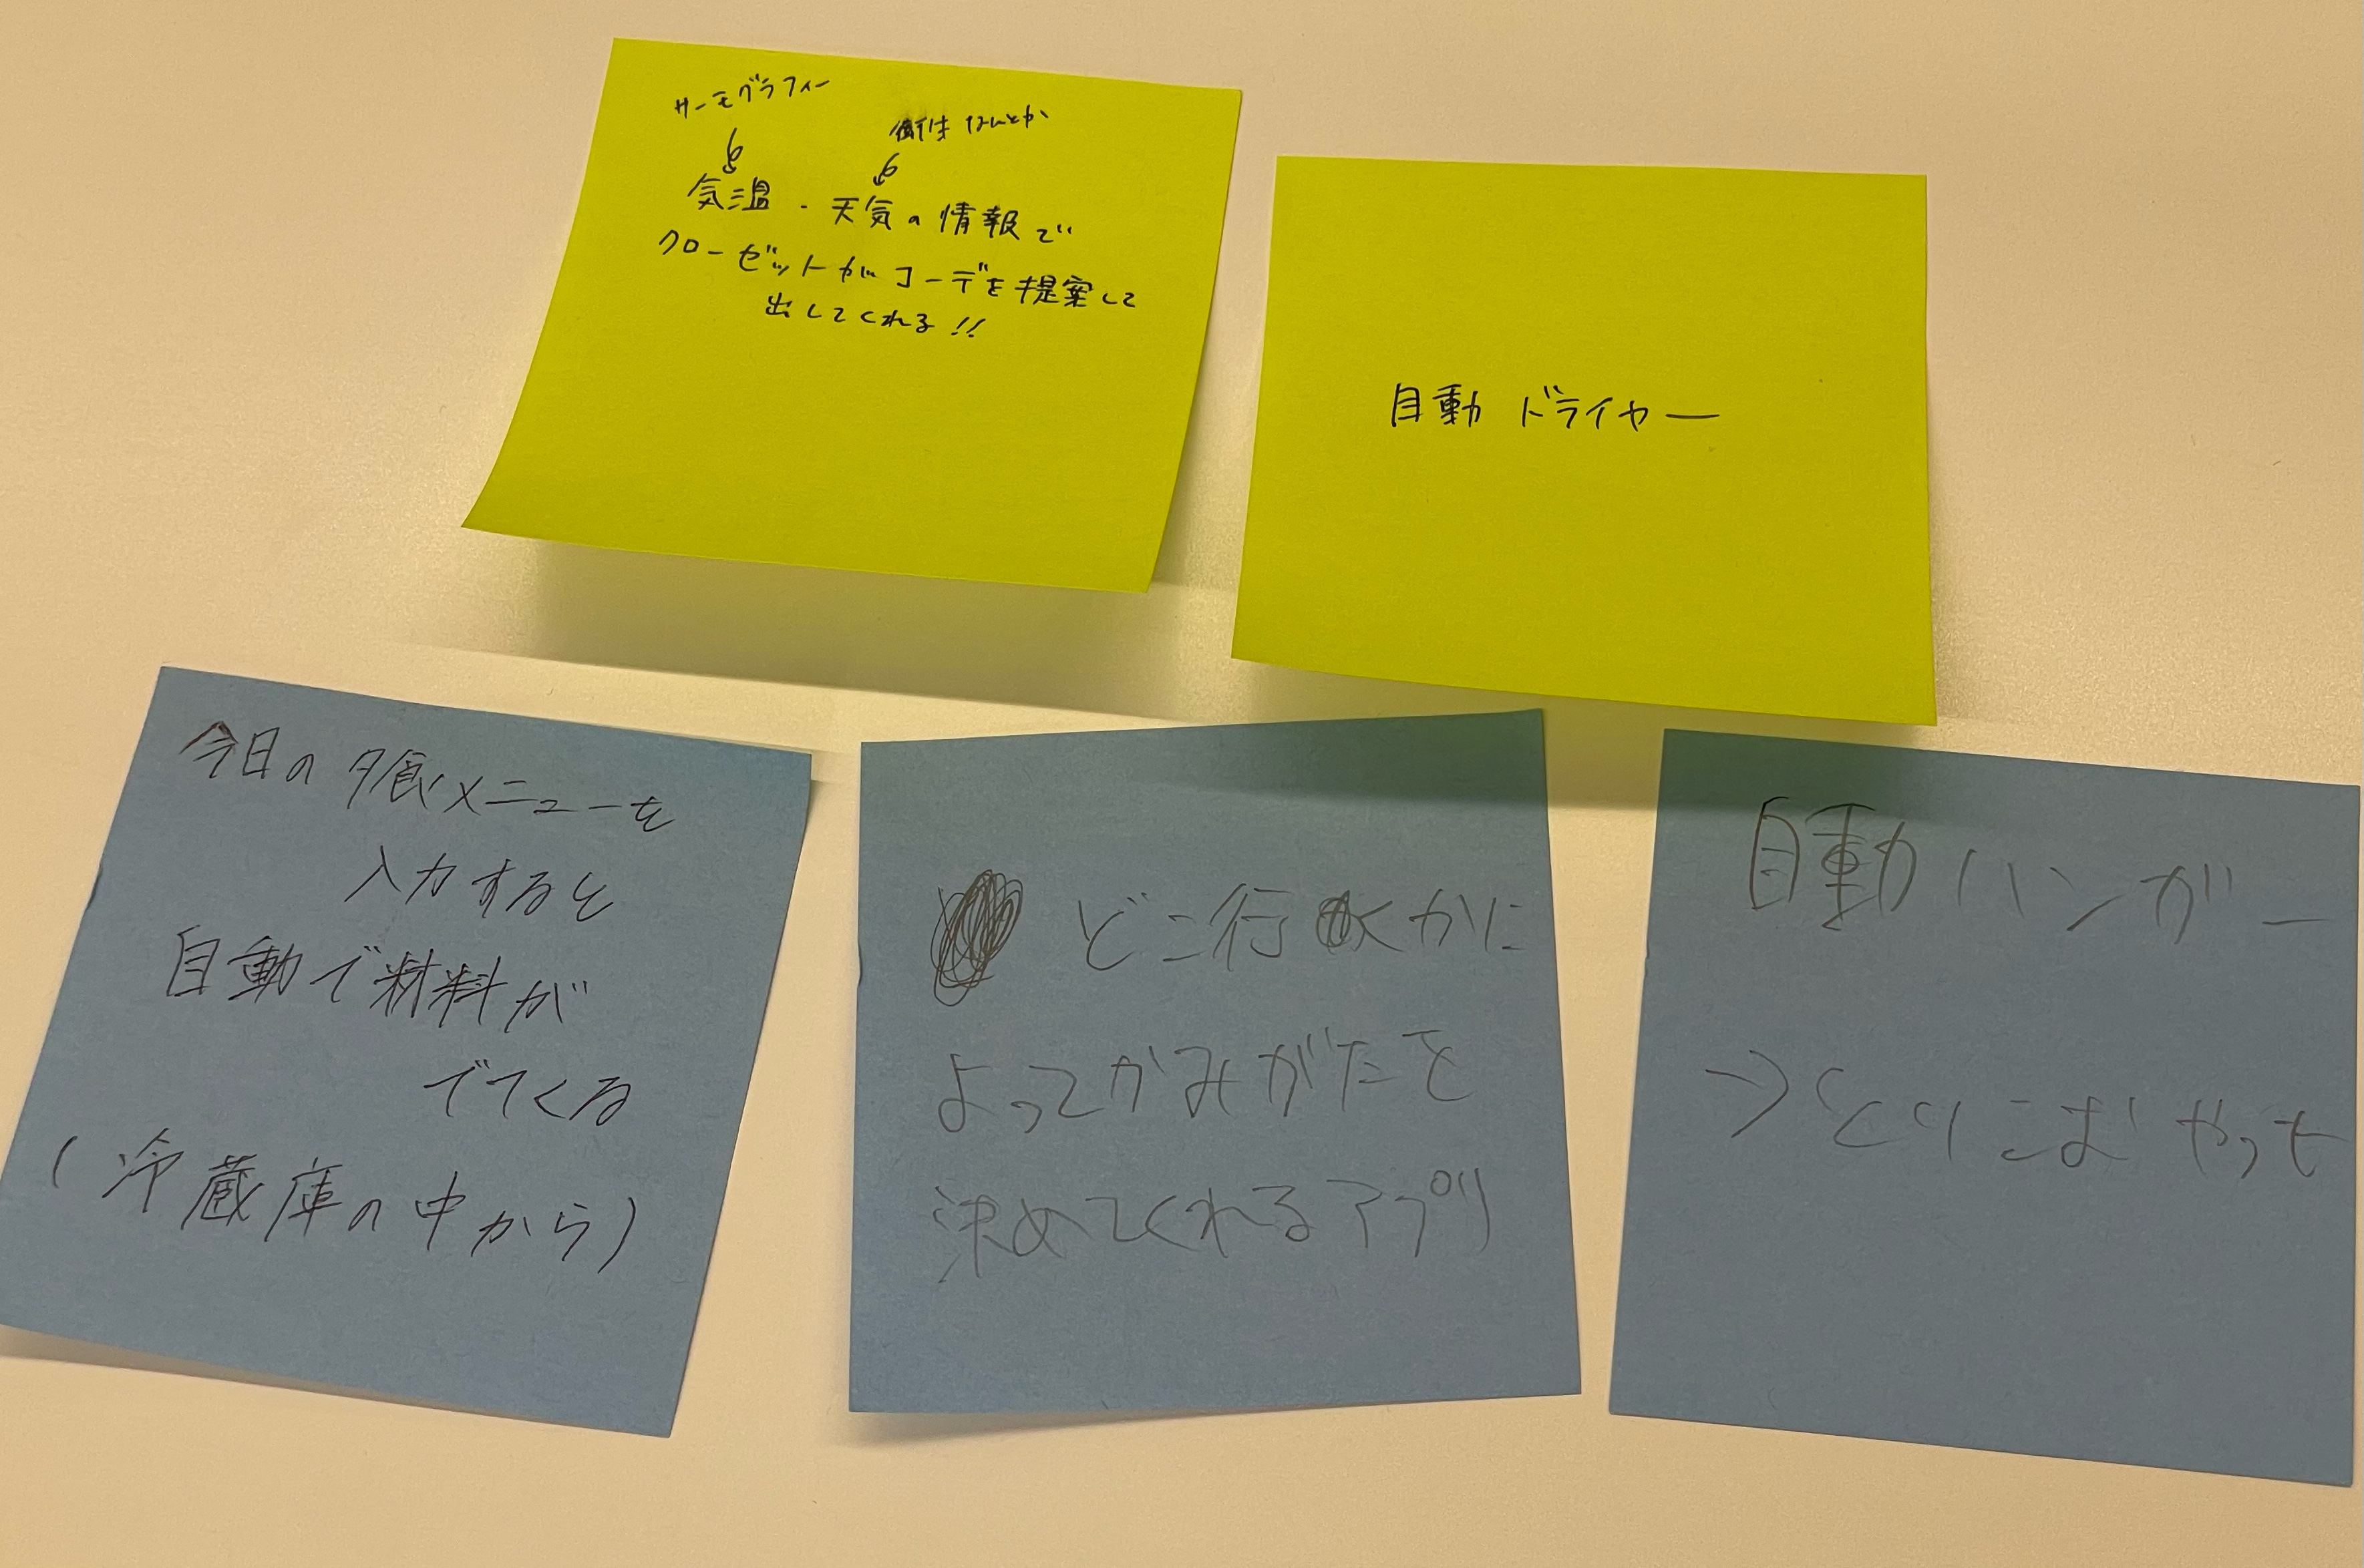 サーモグラフィー
なんとか
気温・天気の情報で
クローゼットがコーデを提案して
出してくれる!!
自動ドライヤー
今日の夕食メニューを
入力すると
自動で材料が
でてくる
(冷蔵庫の中から)
どこ行くかに
よってかみがたを
決めてくれるアプリ
自動ハンガー
→とりこむやつも